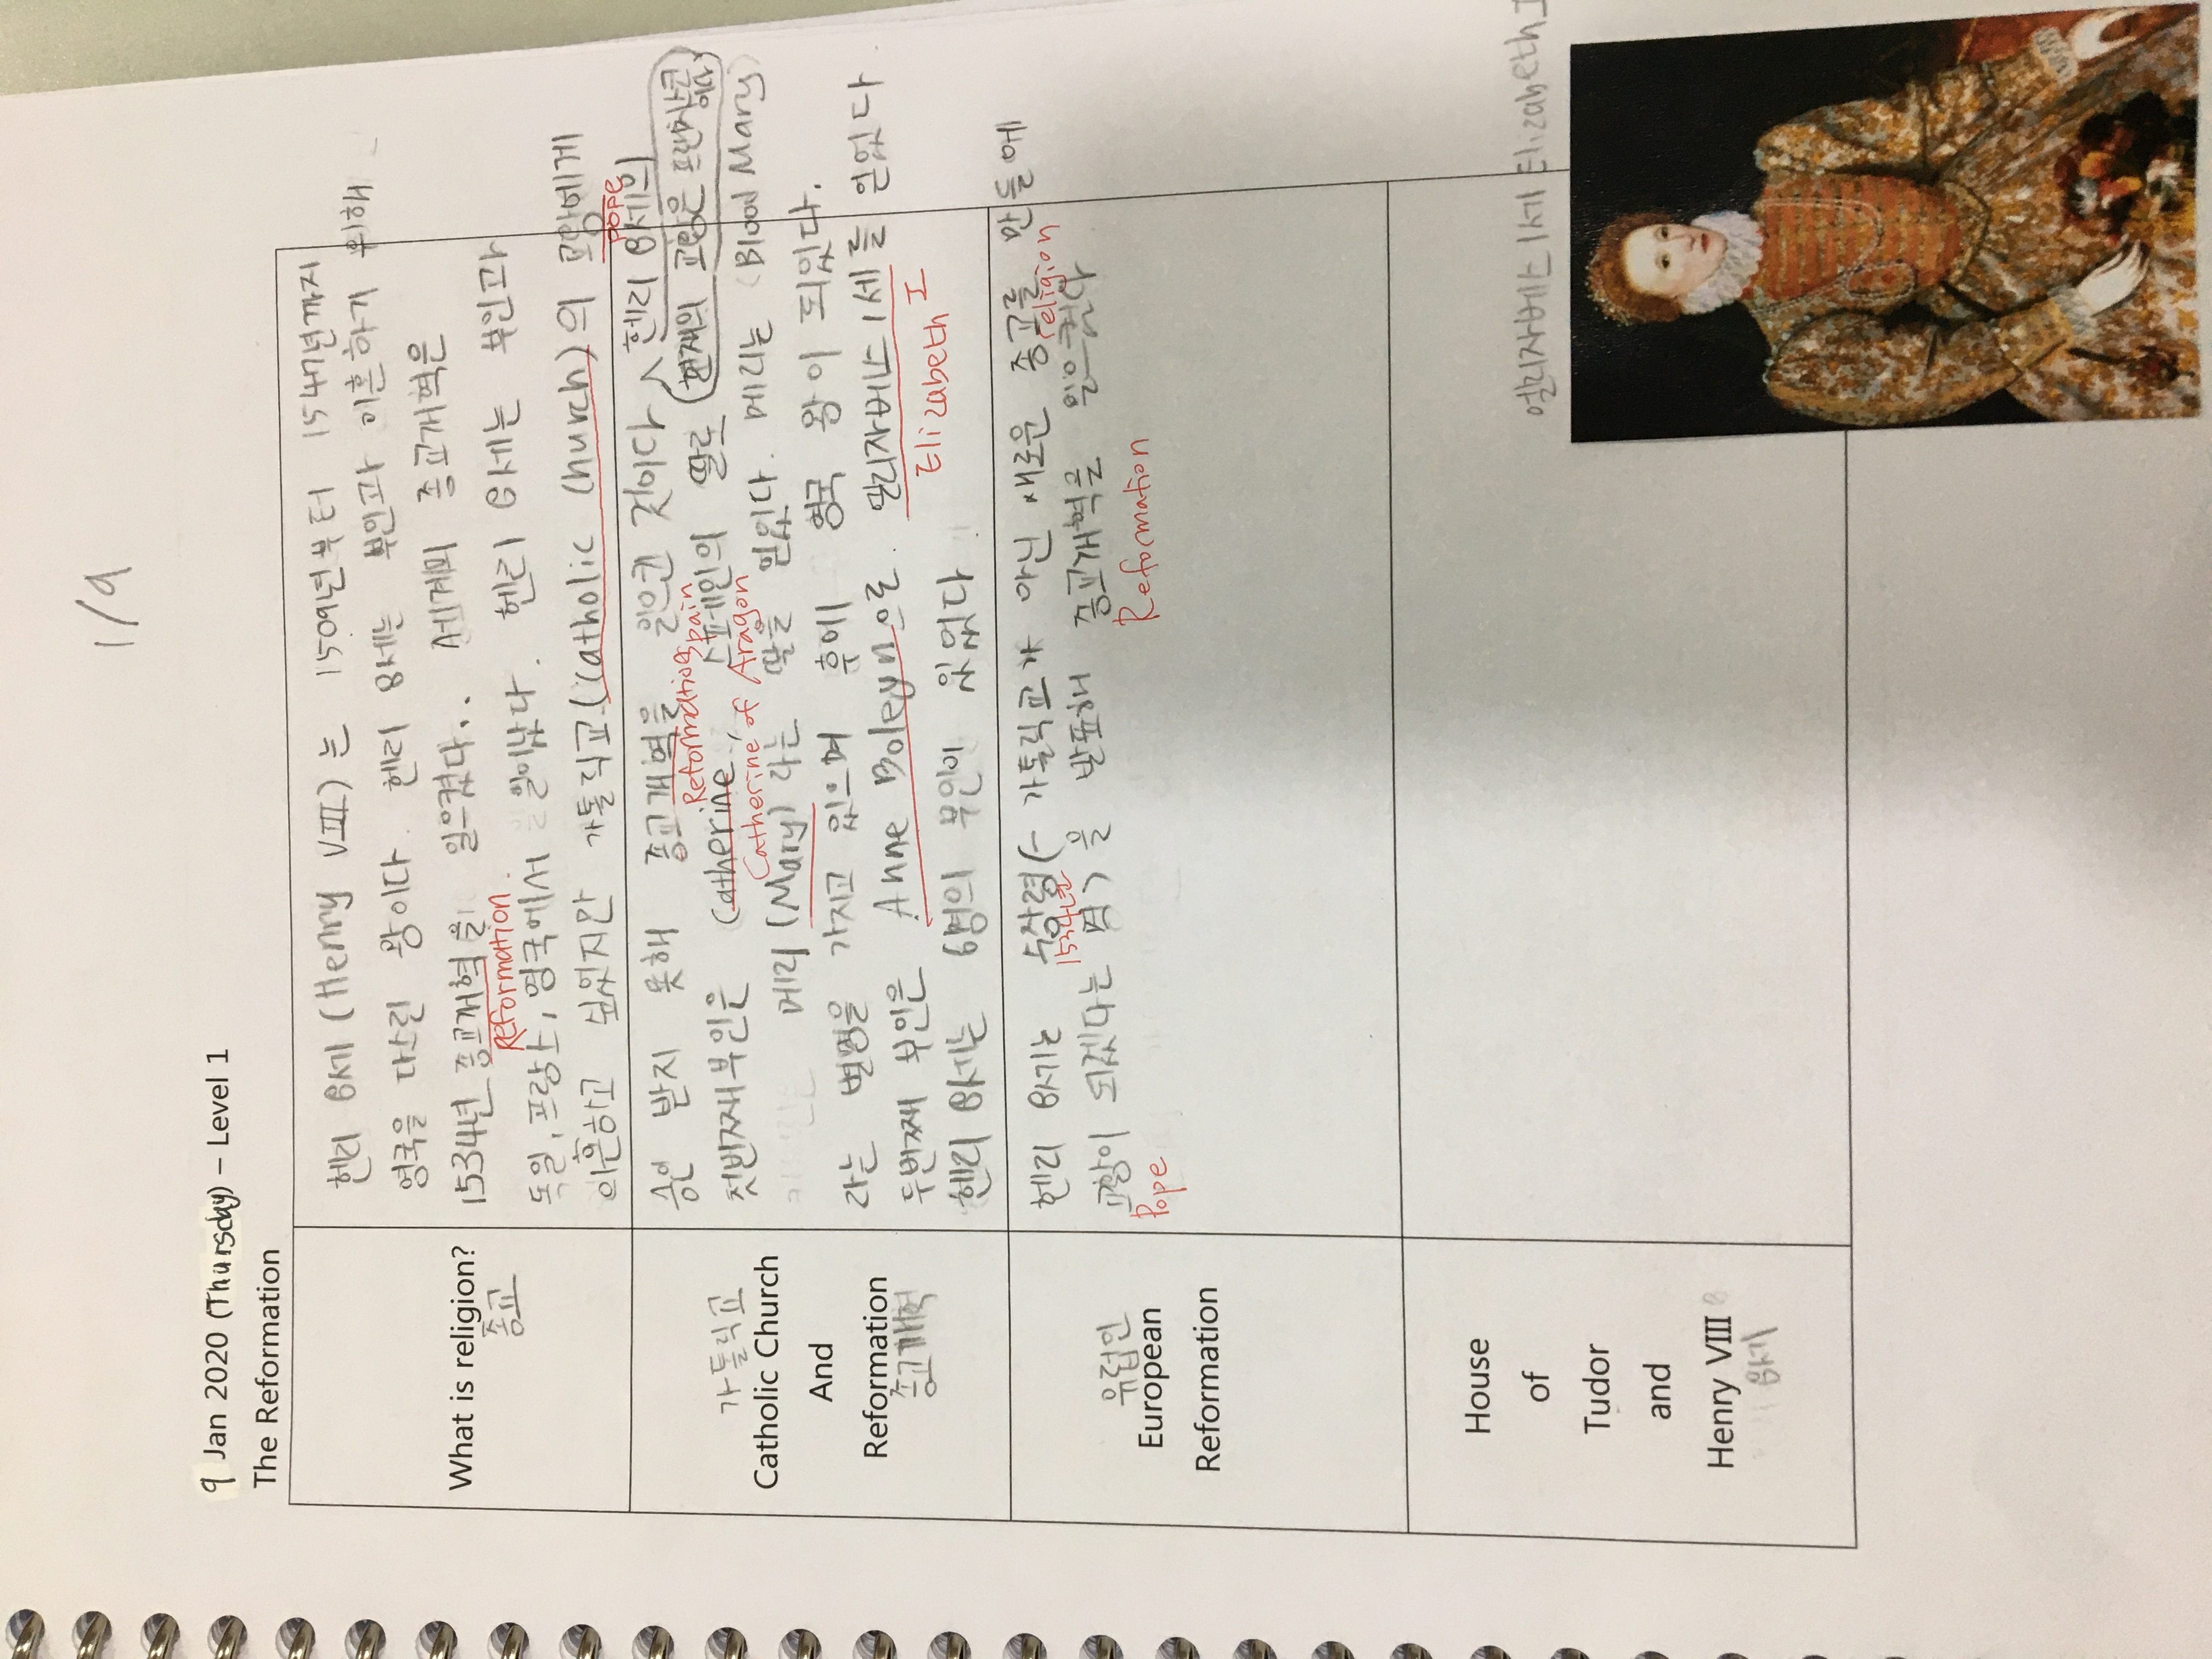 1/9
9 Jan 2020 (Thursday) – Level 1
The Reformation
What is religion?
종교
헨리 8세 (Henry VIII) 는 1509년부터 1547년까지
영국을 다스린 왕이다. 헨리 8세는 부인과 이혼하기 위해
1534년 종교개혁을 일으켰다.. 세계의 종교개혁은
Reformation.
독일, 프랑스, 영국에서 일어났다. 헨리 8세는 부인과
이혼하고 싶었지만 가톨릭교(Catholic Church)의 교황에게
pope
가톨릭교
Catholic Church
And
Reformation
종교개혁
승인 받지 못해 종교개혁을 일으킨 것이다 ^ 헨리 8세의
Reformation
첫번째부인은 Catherine, 스페인의 딸로 (현재의 교황은 프란시스코이다)
spain
Catherine of Aragon
메리 (Mary) 라는 딸을 얻었다. 메리는 (Blood Mary)
라는 별명을 가지고 있으며 후에 영국 왕이 되었다.
두번째 부인은 Anne Boleyn으로. 엘리자베스 1세를 얻었다
Elizabeth I
헨리 8세는 6명의 부인이 있었다
유럽인
European
Reformation
헨리 8세는 수장령(- 가톨릭교가 아닌 새로운 종교를 만들에
1534년
religion
교황이 되겠다는 법)을 발표해 종교개혁을 일으켰다
Pope
Reformation
House
of
Tudor
and
Henry VIII 8
8세
엘리자베스 1세 Elizabeth I